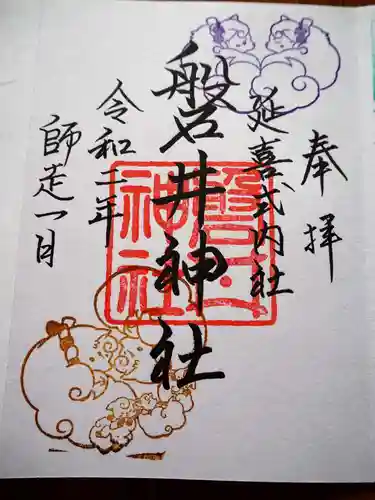 奉拝
延喜式内社
磐井神社
令和二年
師走一日
磐井神社